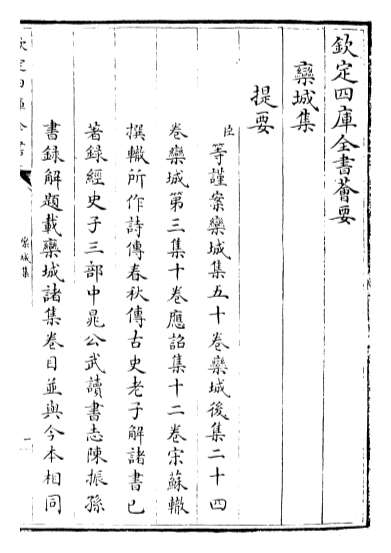 欽定四庫全書薈要
欒城集
提要
臣等謹案欒城集五十卷欒城後集二十四
卷欒城第三集十卷應詔集十二卷宋蘇轍
撰轍所作詩傳春秋傳古史老子解諸書已
著録經史子三部中晁公武讀書志陳振孫
書録解題載欒城諸集卷目並與今本相同
欒城集